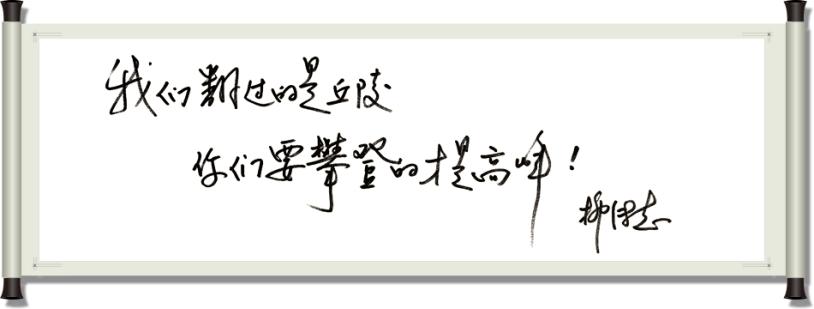 我们翻过的是丘陵
你们要攀登的才是高峰！
柳传志